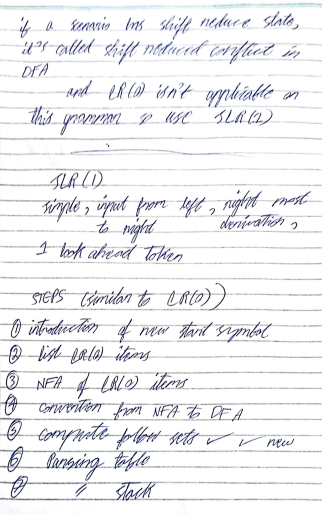 if a scenario has shift reduce state,
it's called shift reduced conflict in
DFA
and LR(0) isn't applicable on
this grammar so use SLR(1)
SLR (1)
simple, input from left, right most
to right derivation,
1 look ahead token
STEPS (similar to LR(0))
① introduction of new start symbol
② list LR(0) items
③ NFA of LR(0) items
④ convertion from NFA to DFA
⑤ compute follow sets ✓ ✓ new
⑥ Parsing table
⑦ " stack